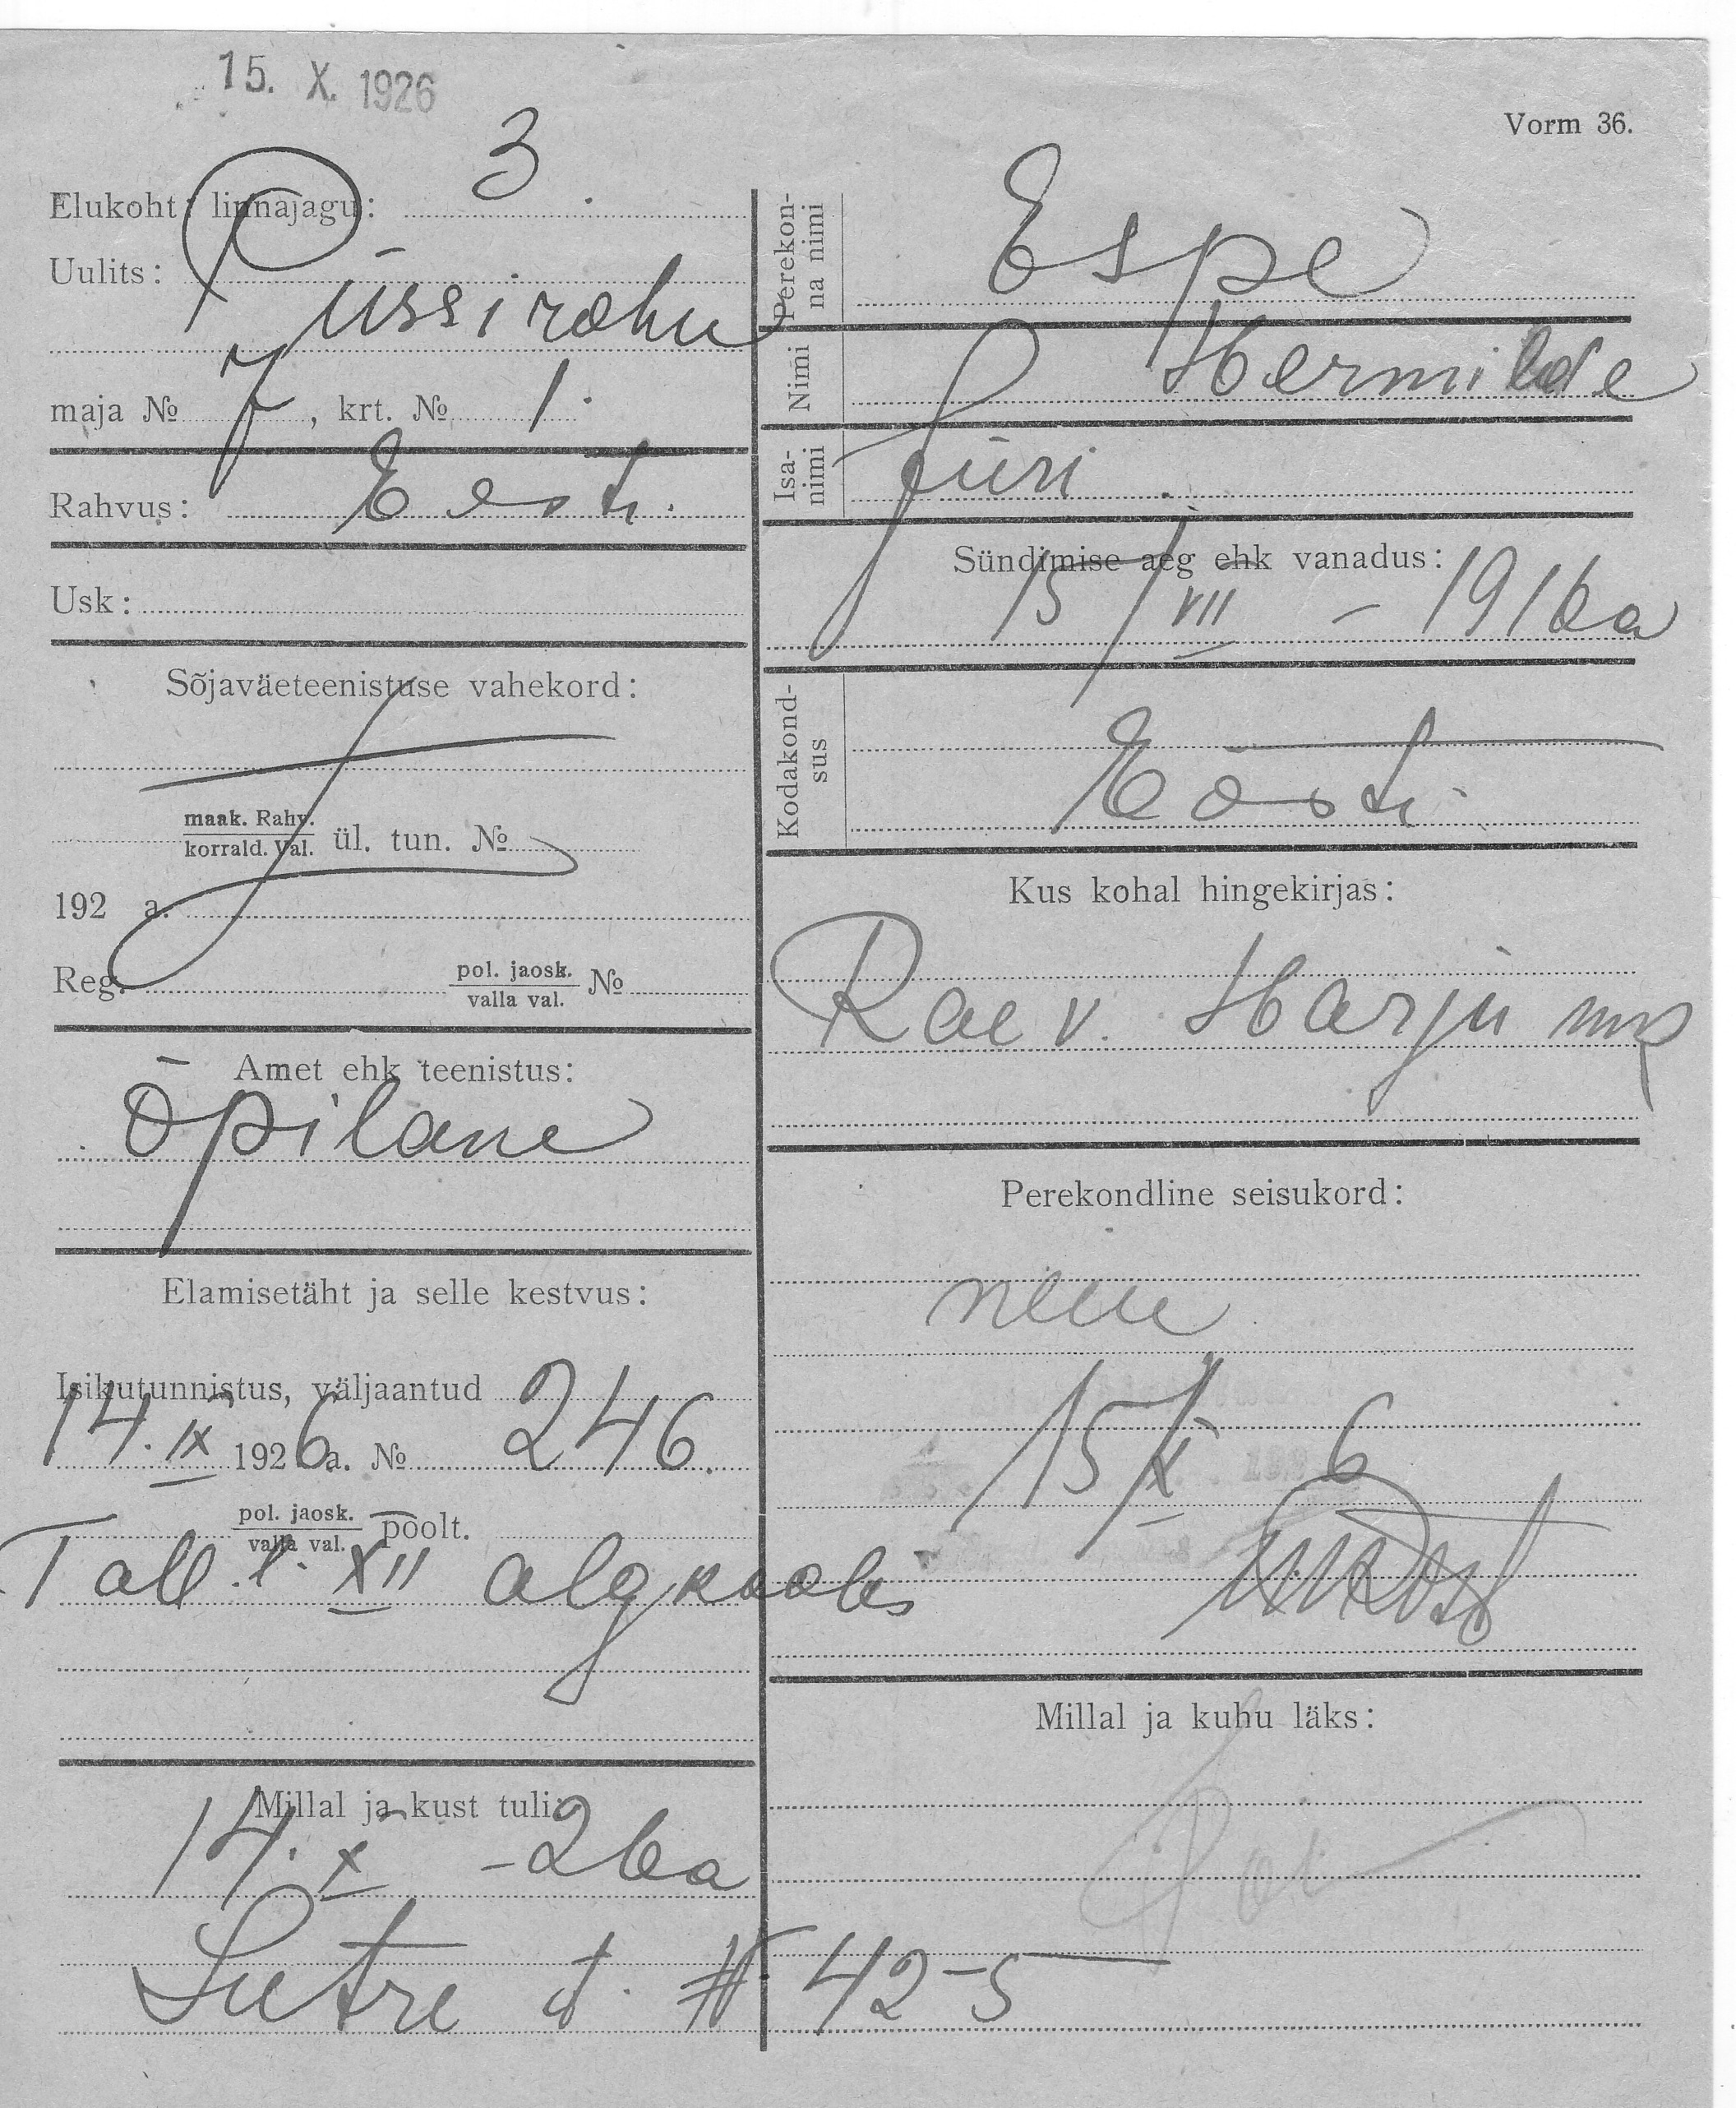 15. X. 1926
Vorm 36.
Elukoht: linnajagu: 3
Uulits:
Püssirohu
maja № 7, krt. № 1.
Rahvus: Eesti.
Usk:
Sõjaväeteenistuse vahekord:
maak. Rahv.
korrald. Val. ül. tun. №
192 a.
Reg. pol. jaosk.
valla val. №
Amet ehk teenistus:
Õpilane
Elamisetäht ja selle kestvus:
Isikutunnistus, väljaantud
14. IX 1926 a. № 246.
pol. jaosk.
valla val. poolt.
Tall. l. XII algkoolis
Millal ja kust tuli:
14. X - 26a
t. # 42-5
Perekon-
na nimi
Espe
Nimi
Hermilde
Isa-
nimi
Jüri
Sündimise aeg ehk vanadus:
15/VII - 1916a
Kodakond-
sus
Eesti.
Kus kohal hingekirjas:
Rae v. Harju
Perekondline seisukord:
neiu
15/X 6
Millal ja kuhu läks: